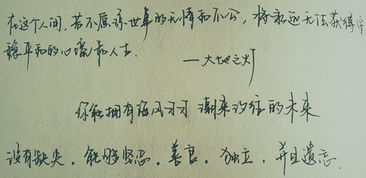 在这个人间，若不原谅世事的无情和不公，将永远无法获得
稳平和的心境和人生
——大地之灯
你能拥有海风习习 潮来汐往的未来
没有缺失，能够坚忍，善良，独立，并且遗忘